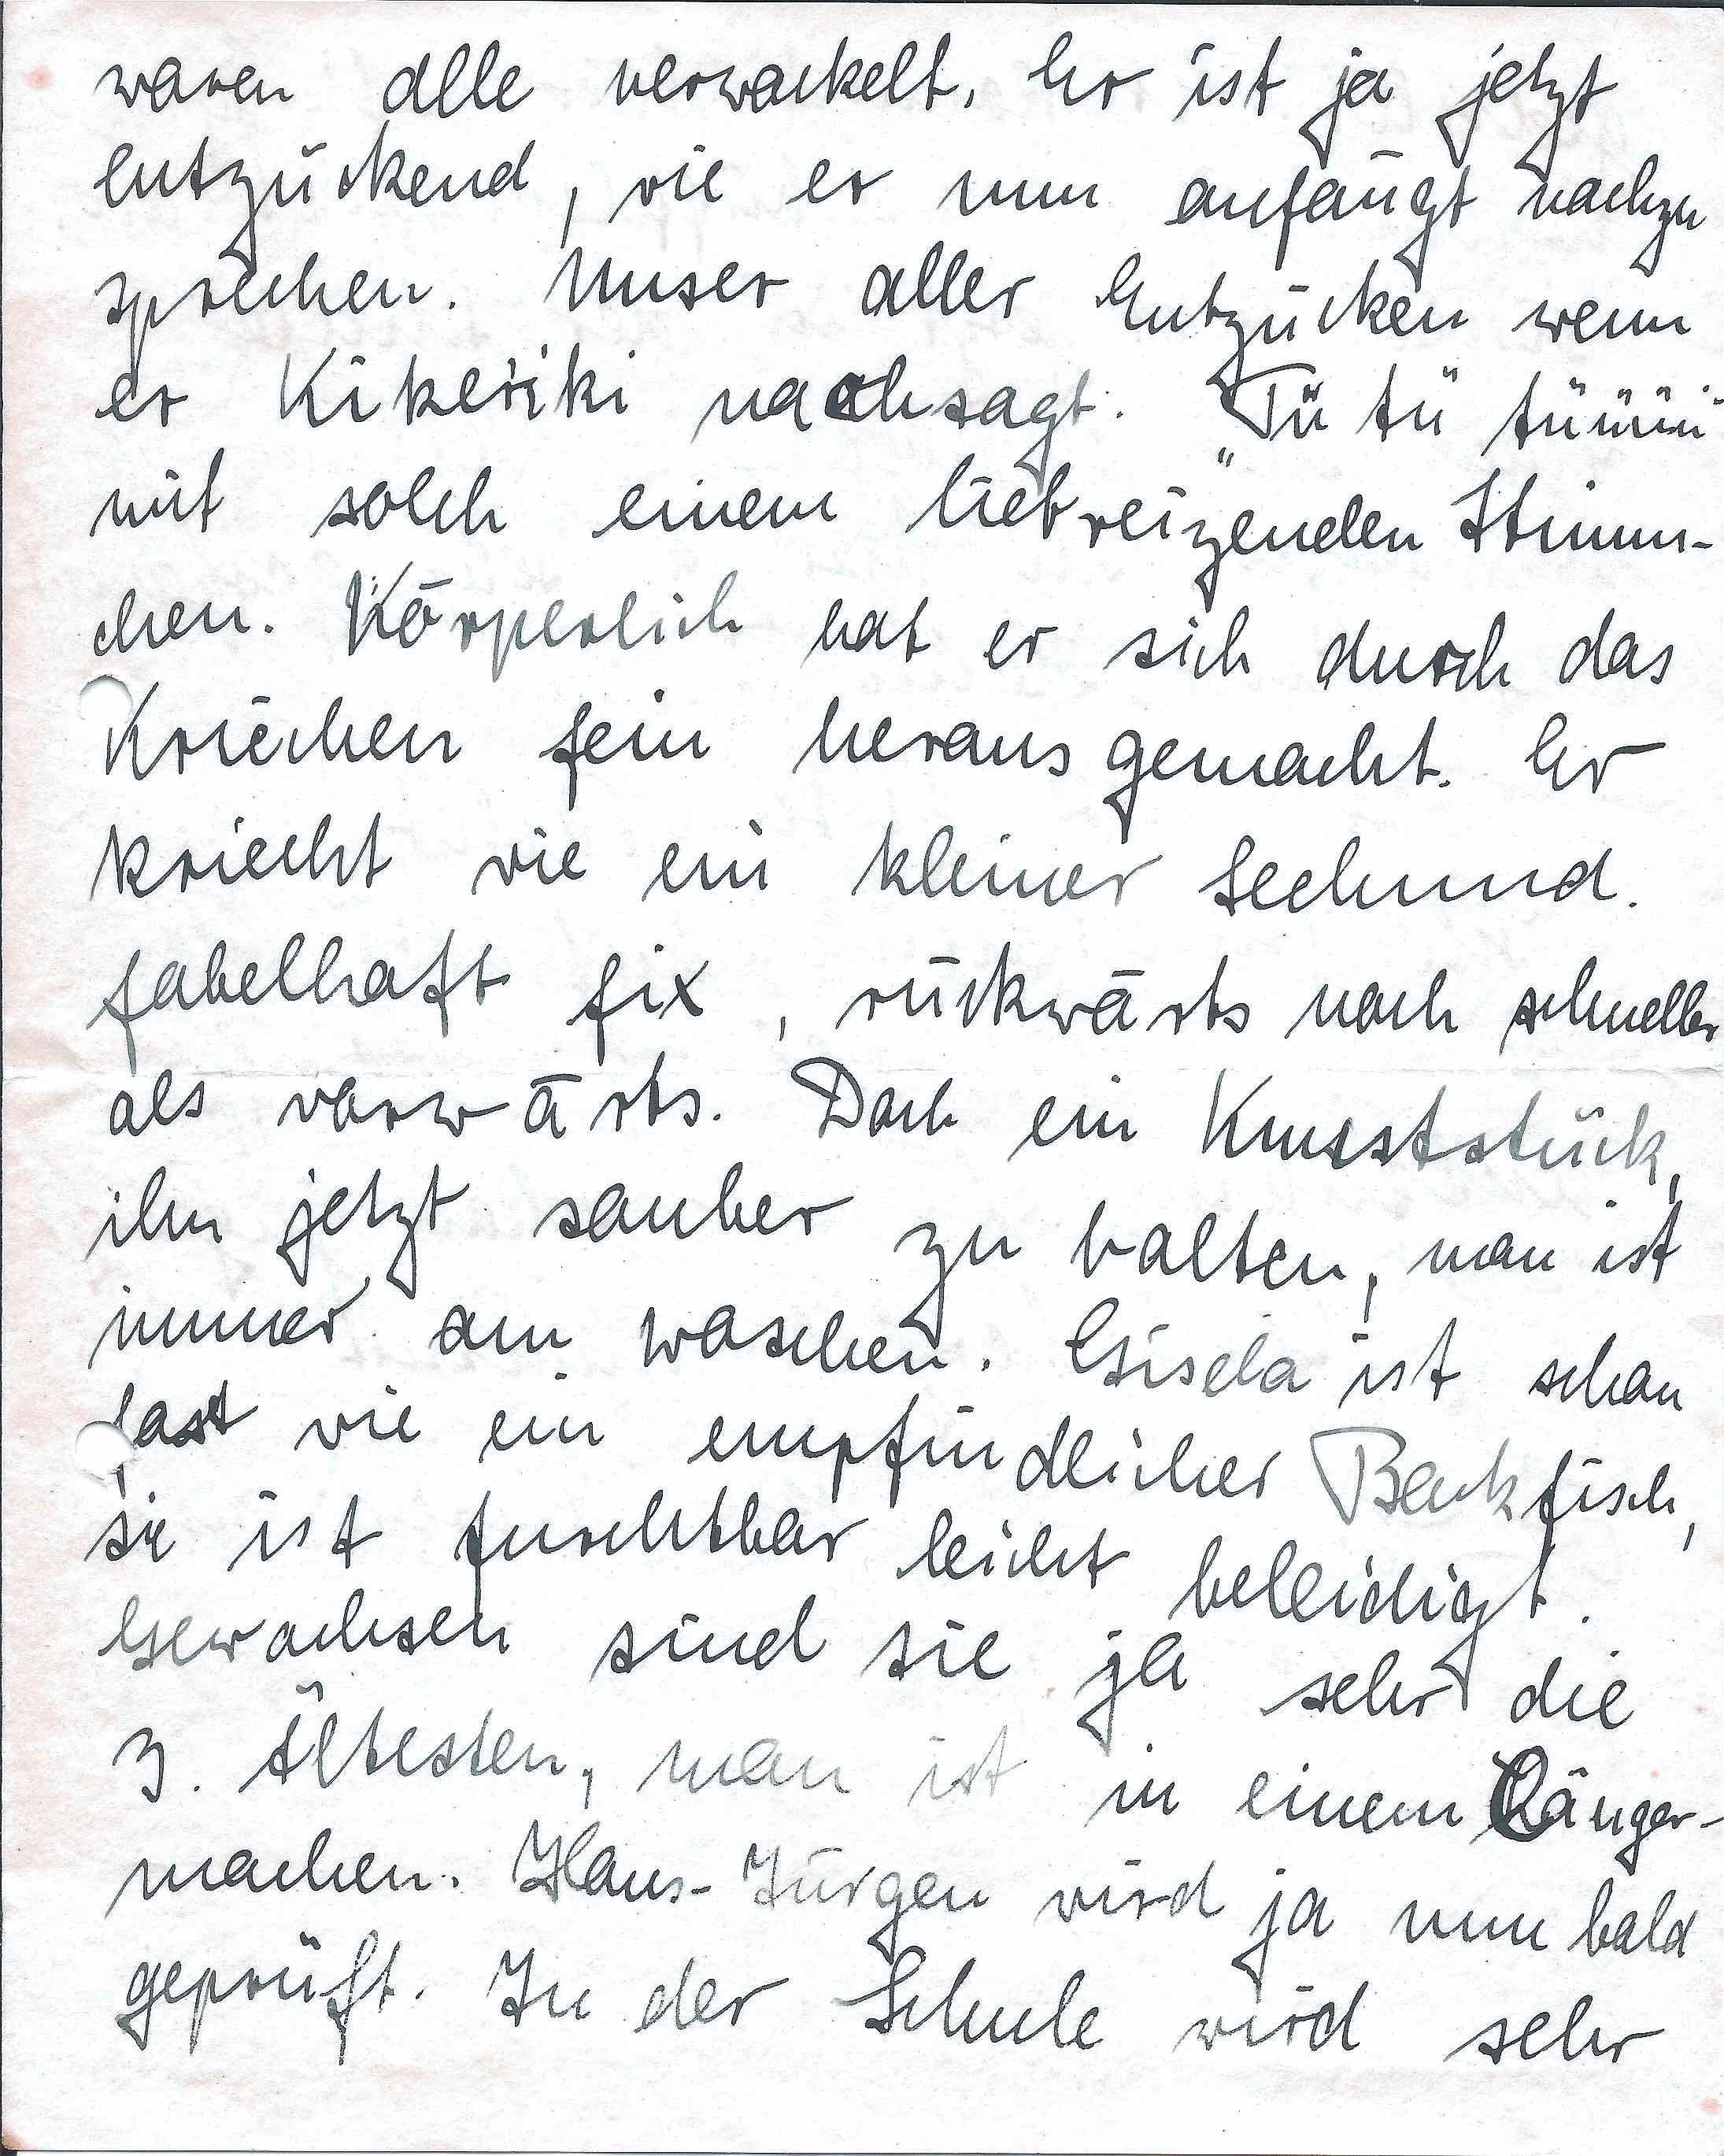 waren alle verwackelt. Er ist ja jetzt
entzückend, wie er nun anfängt nachzu
sprechen. Unser aller Entzücken wenn
er Kikeriki nachsagt. „Tü tü tüüüü"
mit solch einem liebreizenden Stimm-
chen. Körperlich hat er sich durch das
Kriechen fein heraus gemacht. Er
kriecht wie ein kleiner Seehund.
fabelhaft fix, rückwärts noch schneller
als vorwärts. Doch ein Kunststück,
ihn jetzt sauber zu halten, man ist
immer am waschen. Gisela ist schon
fast wie ein empfindlicher Backfisch,
sie ist furchtbar leicht beleidigt.
Gewachsen sind sie ja sehr die
3. Ältesten, man ist in einem Länger-
machen. Hans-Jürgen wird ja nun bald
geprüft. In der Schule wird sehr